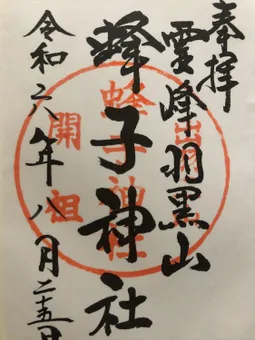 奉拝
霊峰羽黒山
蜂子神社
令和六年八月二十五日
出羽
蜂子神社
開祖